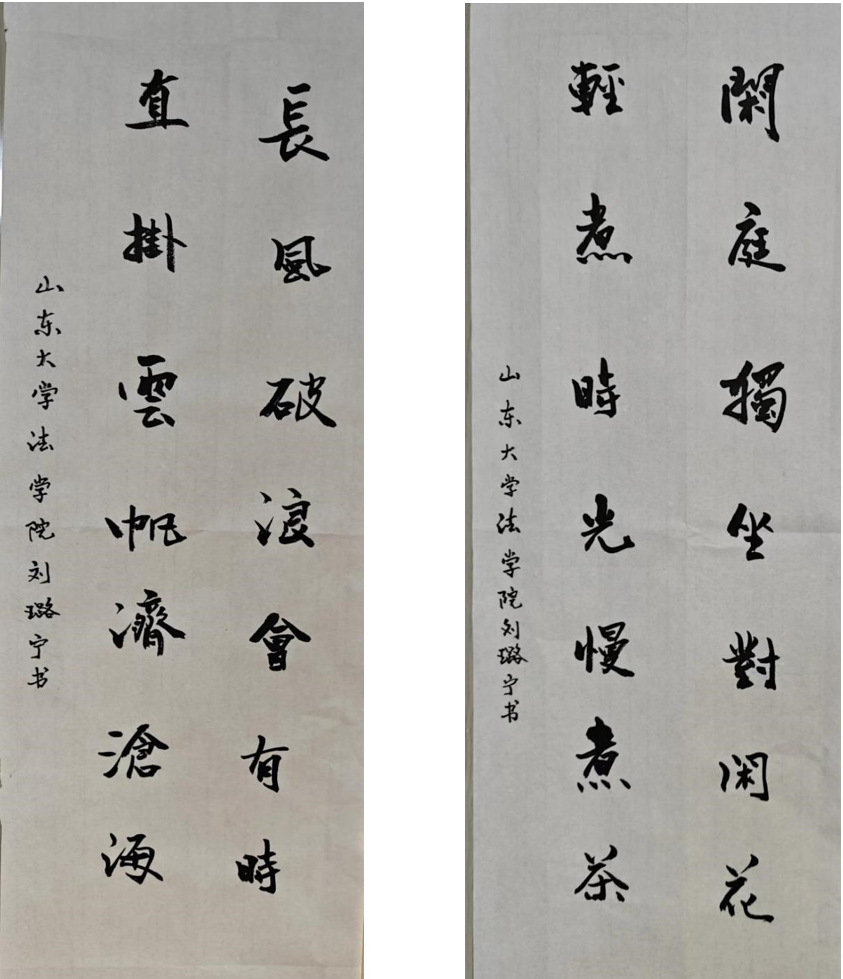 長風破浪會有時
直掛雲帆濟滄海
山东大学法学院刘璐宁书
閑庭獨坐對闲花
輕煮時光慢煮茶
山东大学法学院刘璐宁书